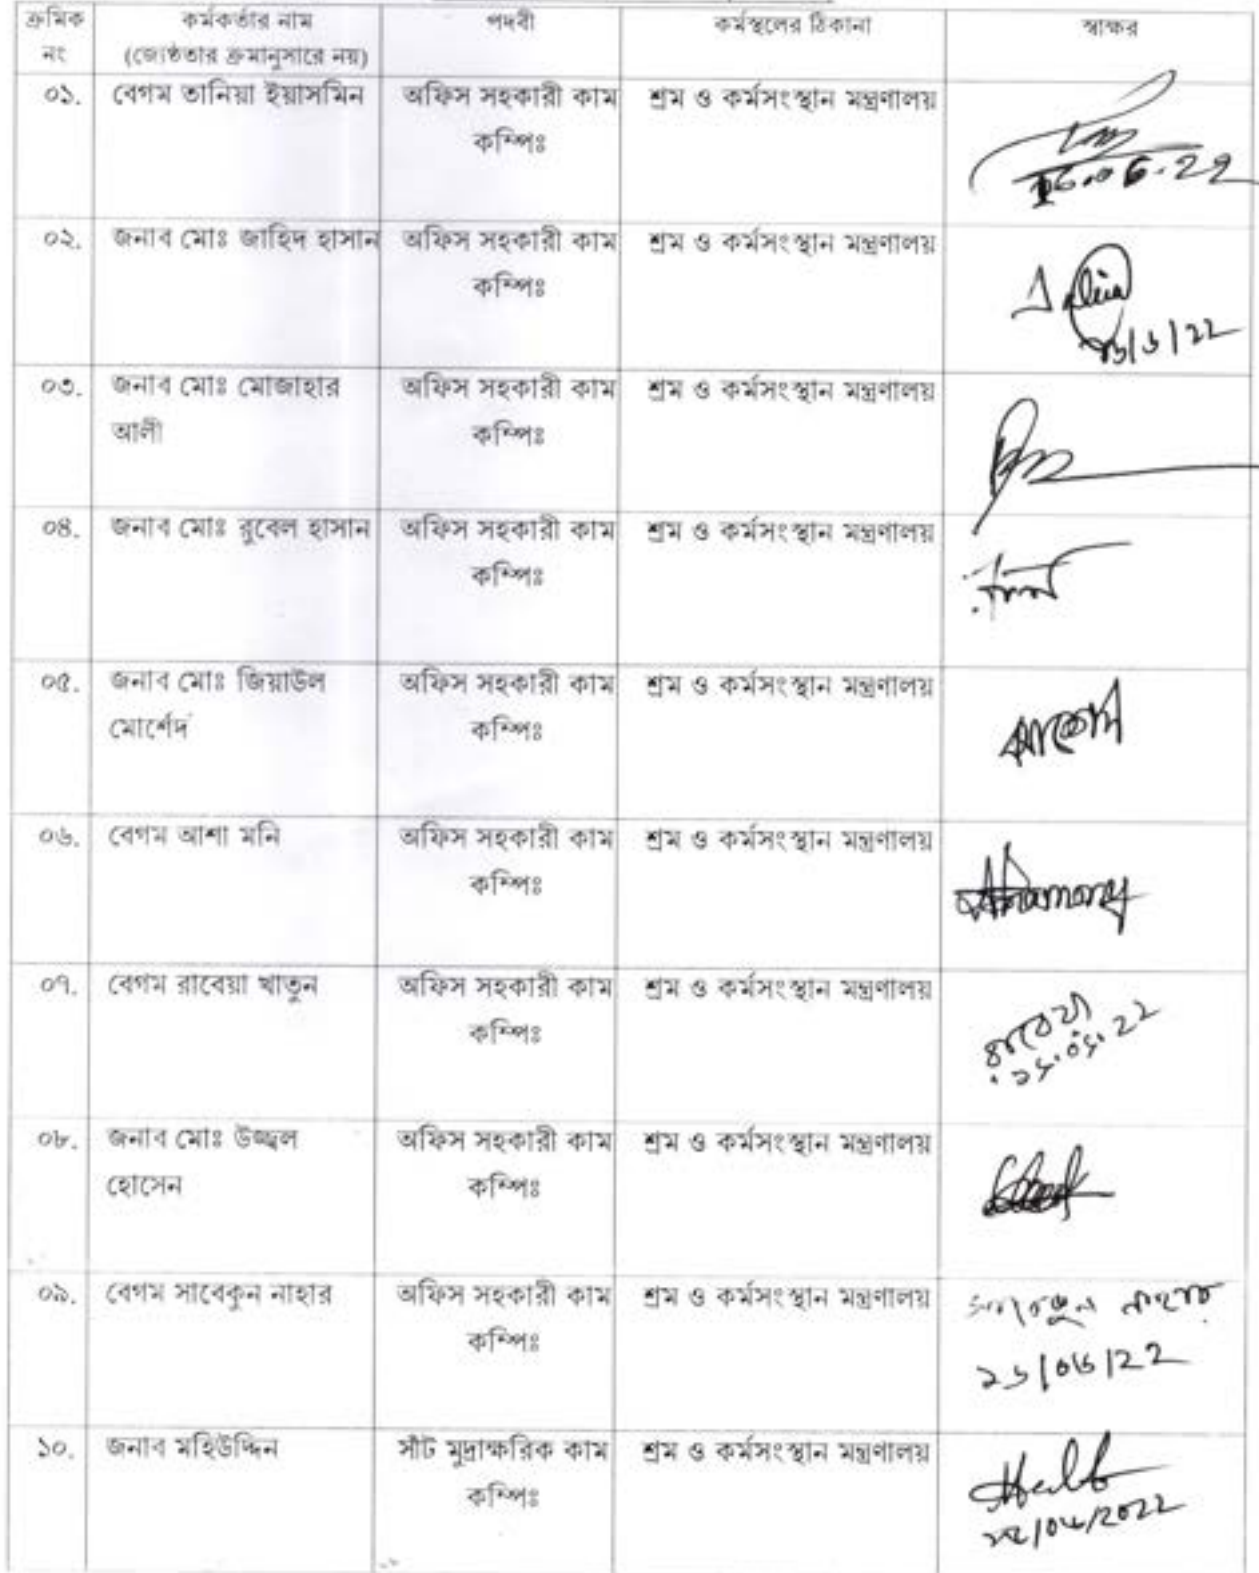 ক্রমিক নং কর্মকর্তার নাম (জ্যেষ্ঠতার ক্রমানুসারে নয়) পদবী কর্মস্থলের ঠিকানা স্বাক্ষর
০১. বেগম তানিয়া ইয়াসমিন অফিস সহকারী কাম শ্রম ও কর্মসংস্থান মন্ত্রণালয়
কম্পিঃ
০২. জনাব মোঃ জাহিদ হাসান অফিস সহকারী কাম শ্রম ও কর্মসংস্থান মন্ত্রণালয়
কম্পিঃ
০৩. জনাব মোঃ মোজাহার অফিস সহকারী কাম শ্রম ও কর্মসংস্থান মন্ত্রণালয়
আলী কম্পিঃ
০৪. জনাব মোঃ রুবেল হাসান অফিস সহকারী কাম শ্রম ও কর্মসংস্থান মন্ত্রণালয়
কম্পিঃ
০৫. জনাব মোঃ জিয়াউল অফিস সহকারী কাম শ্রম ও কর্মসংস্থান মন্ত্রণালয়
মোর্শেদ কম্পিঃ
০৬. বেগম আশা মনি অফিস সহকারী কাম শ্রম ও কর্মসংস্থান মন্ত্রণালয়
কম্পিঃ
০৭. বেগম রাবেয়া খাতুন অফিস সহকারী কাম শ্রম ও কর্মসংস্থান মন্ত্রণালয়
কম্পিঃ
০৮. জনাব মোঃ উজ্জ্বল অফিস সহকারী কাম শ্রম ও কর্মসংস্থান মন্ত্রণালয়
হোসেন কম্পিঃ
০৯. বেগম সাবেকুন নাহার অফিস সহকারী কাম শ্রম ও কর্মসংস্থান মন্ত্রণালয় সাবেকুন নাহার
কম্পিঃ
১০. জনাব মহিউদ্দিন সাঁট মুদ্রাক্ষরিক কাম শ্রম ও কর্মসংস্থান মন্ত্রণালয়
কম্পিঃ